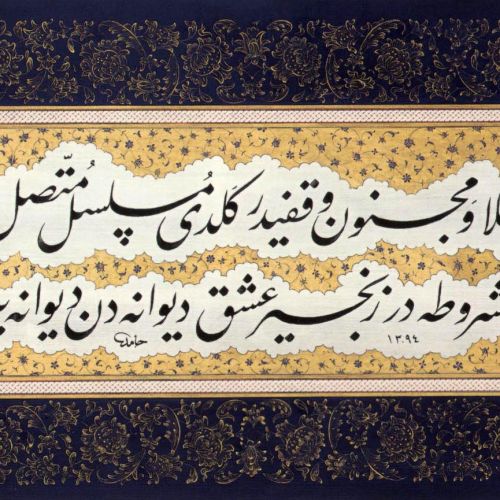 لا و مجنون وقفیدر کلدی مسلسل متصل
شروطه در زنجیر عشق دیوانه دن دیوانه
حامد ١٣٩٤